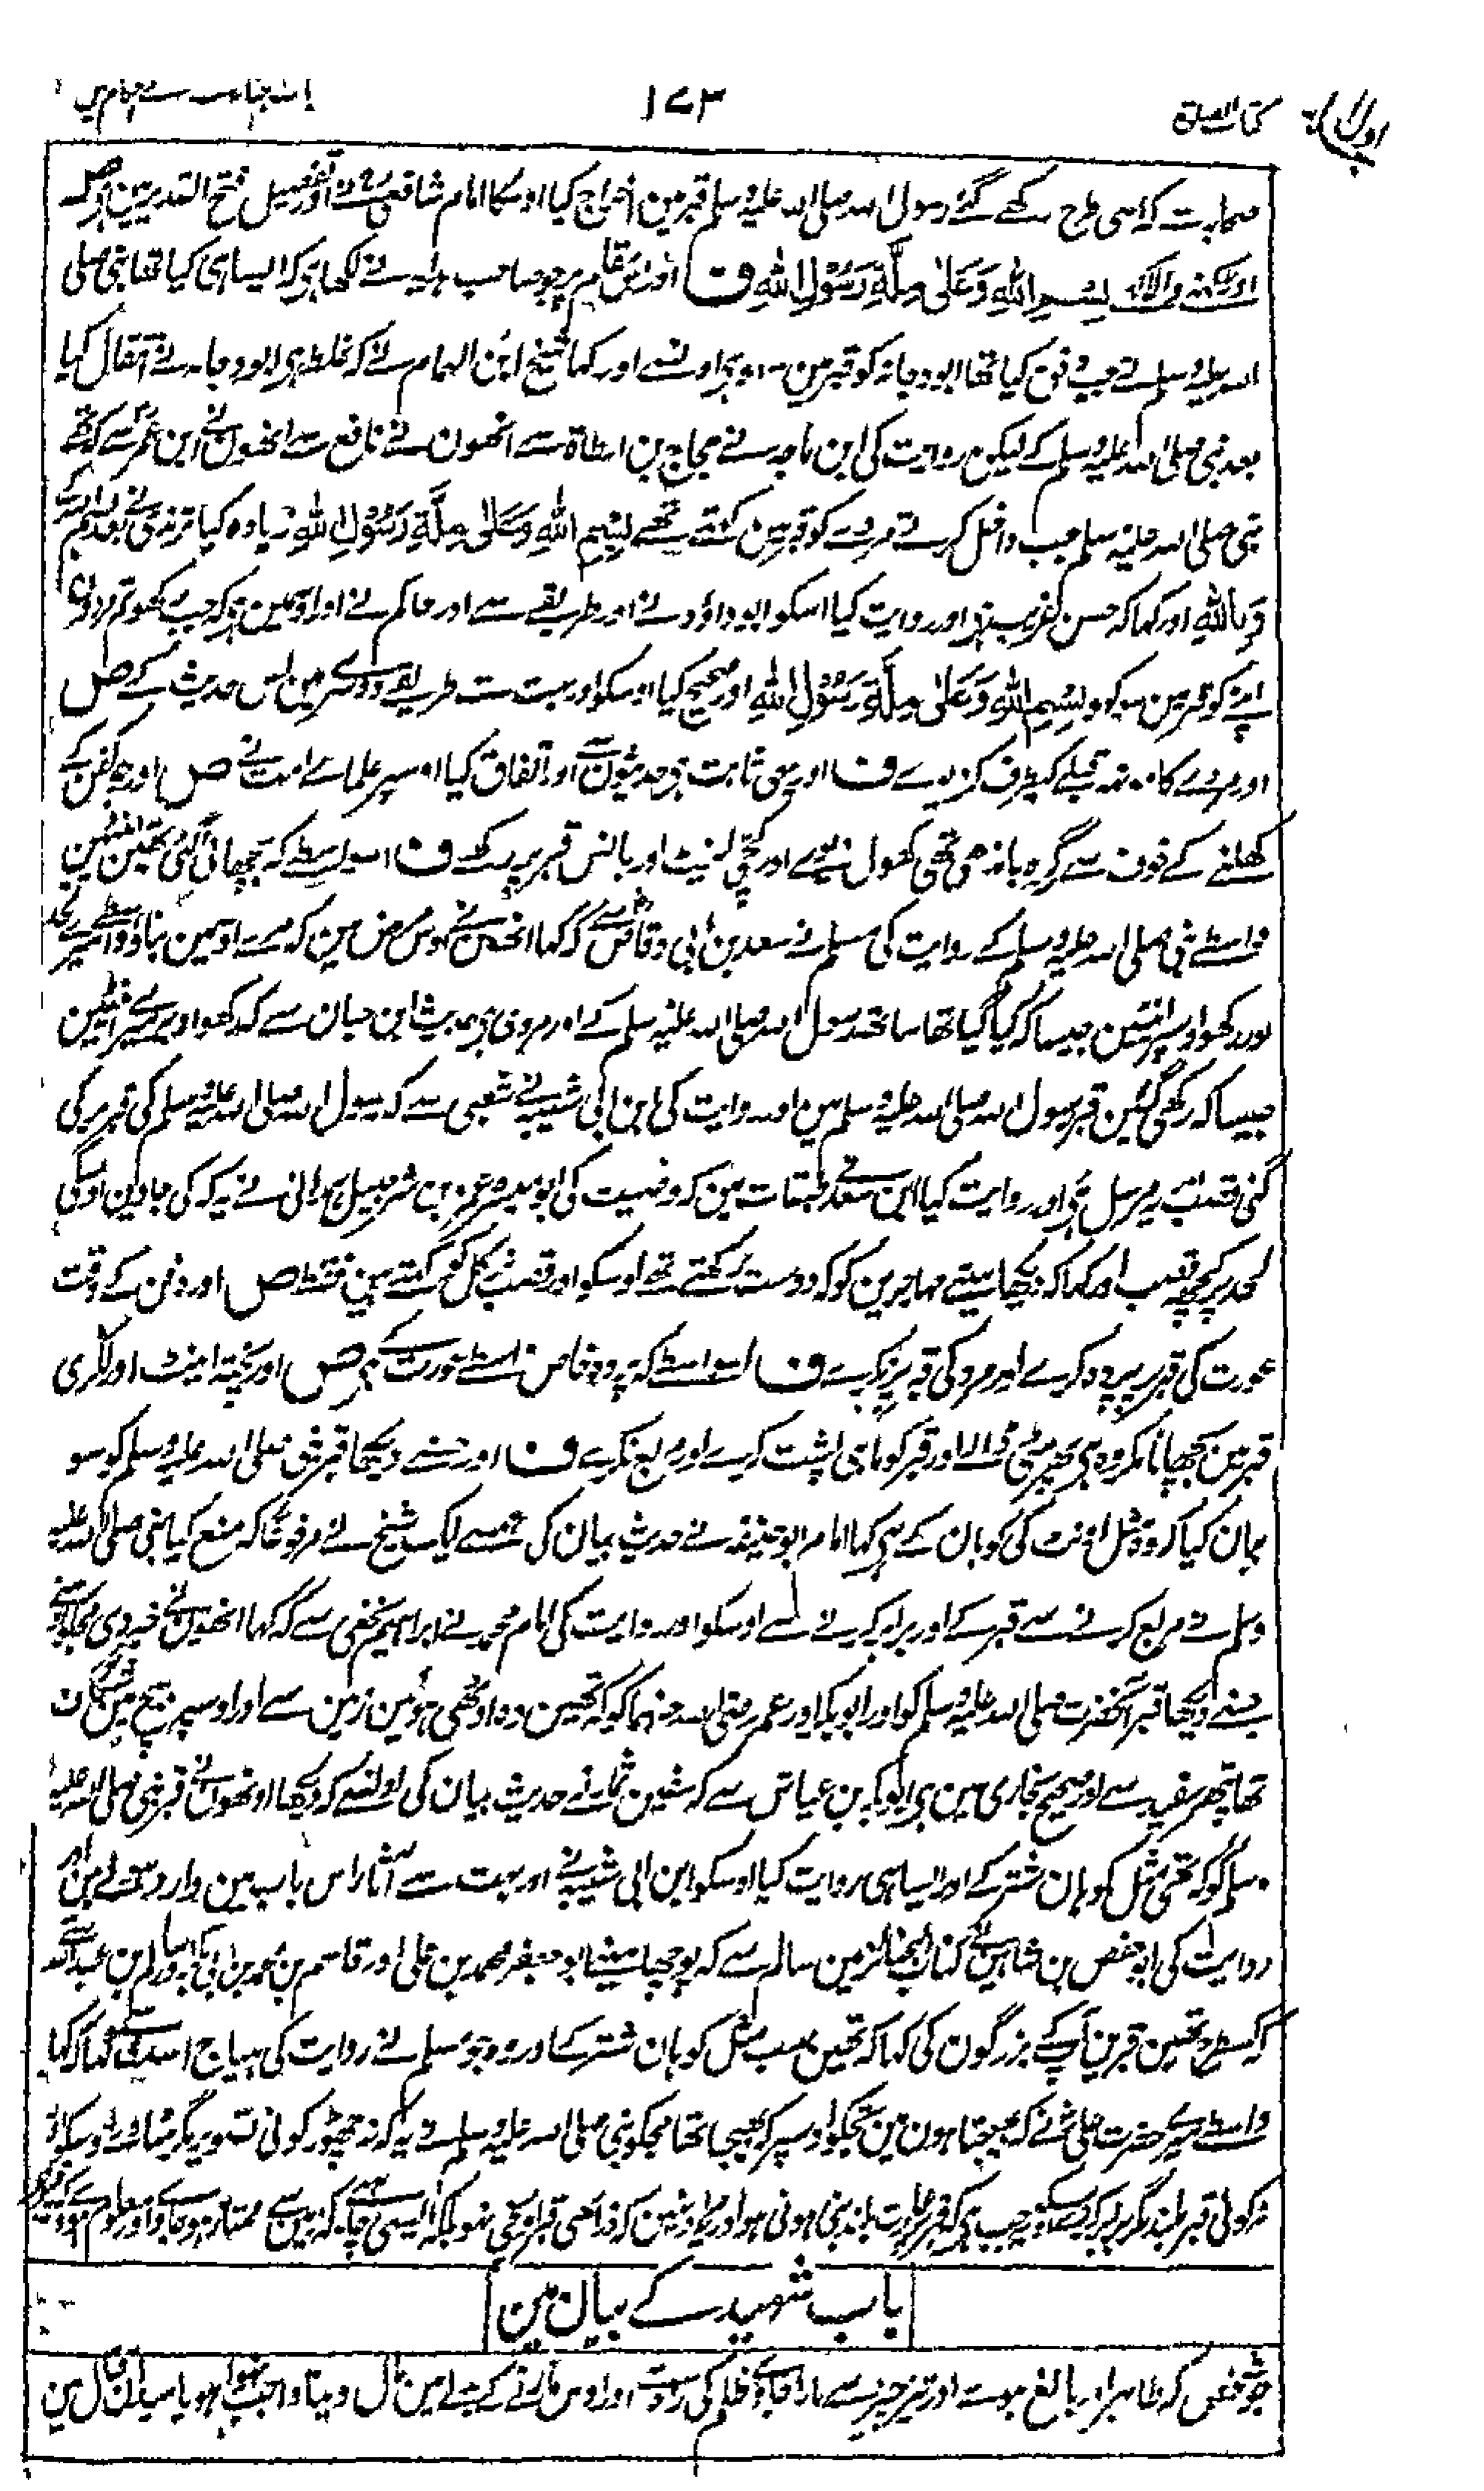 کتاب الصلوٰة
۱۷۳
صحابہ کہ اسی طرح رکھے گئے رسول اللہ صلی اللہ علیہ وسلم قبر مین اخراج کیا اوسکا امام شافعی نے اور تفصیل فتح القدیر مین ہی
رکھنے والا بِسْمِ اللهِ وَعَلٰى مِلَّةِ رَسُوْلِ اللهِ ف اور اس مقام پر جو صاحب ہدایہ نے لکھا ہی کہ ایسا ہی کیا تھا نبی صلی
اللہ علیہ وسلم نے جب دفن کیا تھا ابو دجانہ کو قبر مین سہو ہی اونسے اور کہا شیخ ابن الہمام نے کہ غلط ہی ابو دجانہ نے انتقال کیا
بعد نبی صلی اللہ علیہ وسلم کے لیکن روایت کی ابن ماجہ نے حجاج بن ارطاة سے انھون نے نافع سے انھون نے ابن عمر سے کہ تھے
نبی صلی اللہ علیہ وسلم جب داخل کرتے مردے کو قبر مین کہتے تھے بِسْمِ اللهِ وَعَلٰى مِلَّةِ رَسُوْلِ اللهِ زیادہ کیا ترمذی نے بعد بسم اللہ کے
وَبِاللهِ اور کہا کہ حسن غریب ہی اور روایت کیا اسکو ابو داؤد نے اور طریقے سے اور حاکم نے اور اوسمین ہی کہ جب رکھو تم مردون
اپنے کو قبر مین کہو بِسْمِ اللهِ وَعَلٰى مِلَّةِ رَسُوْلِ اللهِ اور صحیح کیا اوسکو اور بہت سے طریقے دوسرے ہین اس حدیث کے ص
اور مردے کا مونہہ قبلے کیطرف کر دیوے ف اور یہی ثابت ہی حدیثون سے اور اتفاق کیا اوسپر علماے امت نے ص اور جو کفن کے
کھلنے کے خوف سے گرہ باندھی تھی کھول دیوے اور کچی اینٹ اور بانس قبر پر رکھے ف اسواسطے کہ بچھائی گئی تھین اینٹین
واسطے نبی صلی اللہ علیہ وسلم کے روایت کی مسلم نے سعد بن ابی وقاص سے کہ کہا انھون نے اوس مرض مین کہ مرے اوسمین بناؤ واسطے میرے لحد
اور رکھو اوسپر اینٹین جیسا کہ کیا گیا تھا ساتھ رسول اللہ صلی اللہ علیہ وسلم کے اور مروی ہی حدیث ابن حبان سے کہ رکھو اوپر میرے اینٹین
جیسا کہ رکھی گئین قبر رسول اللہ صلی اللہ علیہ وسلم مین اور روایت کی ابن ابی شیبہ نے شعبی سے کہ رسول اللہ صلی اللہ علیہ وسلم کی قبر پر کی
گئی قصب یہ مرسل ہی اور روایت کیا ابن سعد نے طبقات مین کہ وصیت کی ابو میسرہ عمرو بن شرحبیل ہمدانی نے یہ کہ کی جاوین اوسکی
لحد پر کچھ قصب اور کہا کہ دیکھا مینے مہاجرین کو کہ دوست رکھتے تھے اوسکو اور قصب کلک کو کہتے ہین فقط ص اور دفن کے وقت
عورت کی قبر پر پردہ کرے اور مرد کی قبر پر نکرے ف اسواسطے کہ پردہ خاص واسطے عورت کے ہی ص اور پختہ اینٹ اور لکڑی
قبر مین بچھانا مکروہ ہی پھر مٹی ڈالے اور قبر کو ماہی پشت کرے اور مربع نکرے ف اور جسنے دیکھا قبر نبی صلی اللہ علیہ وسلم کو سو
بیان کیا کہ وہ مثل اونٹ کی کوہان کے ہی کہا امام ابو حنیفہ نے حدیث بیان کی ہمسے ایک شیخ نے مرفوعًا کہ منع کیا نبی صلی اللہ علیہ
وسلم نے مربع کرنے سے قبر کے اور برابر کرنے سے اوسکو اور روایت کی امام محمد نے ابراہیم نخعی سے کہ کہا انھون نے خبر دی مجکو اوسنے
جسنے دیکھا قبر آنحضرت صلی اللہ علیہ وسلم کو اور ابو بکر اور عمر رضی اللہ عنہما کو کہ تھین وہ اوٹھی ہوئین زمین سے اور اوسپر
تھا پتھر سفید سے اور صحیح بخاری مین ہی ابو بکر بن عیاش سے کہ سفین تمار نے حدیث بیان کی اونسے کہ دیکھا اونھون نے قبر نبی صلی اللہ علیہ
وسلم کو کہ تھی مثل کوہان شتر کے اور ایسا ہی روایت کیا اوسکو ابن ابی شیبہ نے اور بہت سے آثار اس باب مین وارد ہوئے ہین اور
روایت کی ابو حفص بن شاہین نے کتاب الجنائز مین سالم سے کہ پوچھا مینے ابو جعفر محمد بن علی اور قاسم بن محمد بن ابی بکر اور سالم بن عبد اللہ سے
کہ کسطرح تھین قبرین آپکے بزرگون کی کہا کہ تھین سب مثل کوہان شتر کے اور وہ جو مسلم نے روایت کی ہیاج اسدی سے کہا کہ کہا
واسطے میرے حضرت علی نے کہ بھیجتا ہون مین تجکو اوسپر کہ بھیجا تھا مجکو نبی صلی اللہ علیہ وسلم نے یہ کہ نہ چھوڑ کوئی تصویر مگر مٹا دے اوسکو اور
نہ کوئی قبر بلند مگر برابر کر دے اوسکو
باب شہید کے بیان مین
جو شخص کہ طاہر اور بالغ ہووے اور تیز چیز سے مارا جاوے ظلم کی رو سے اور اوس مارنے کے بدلے مین مال دینا واجب نہوا ہو یا میدان قتال مین